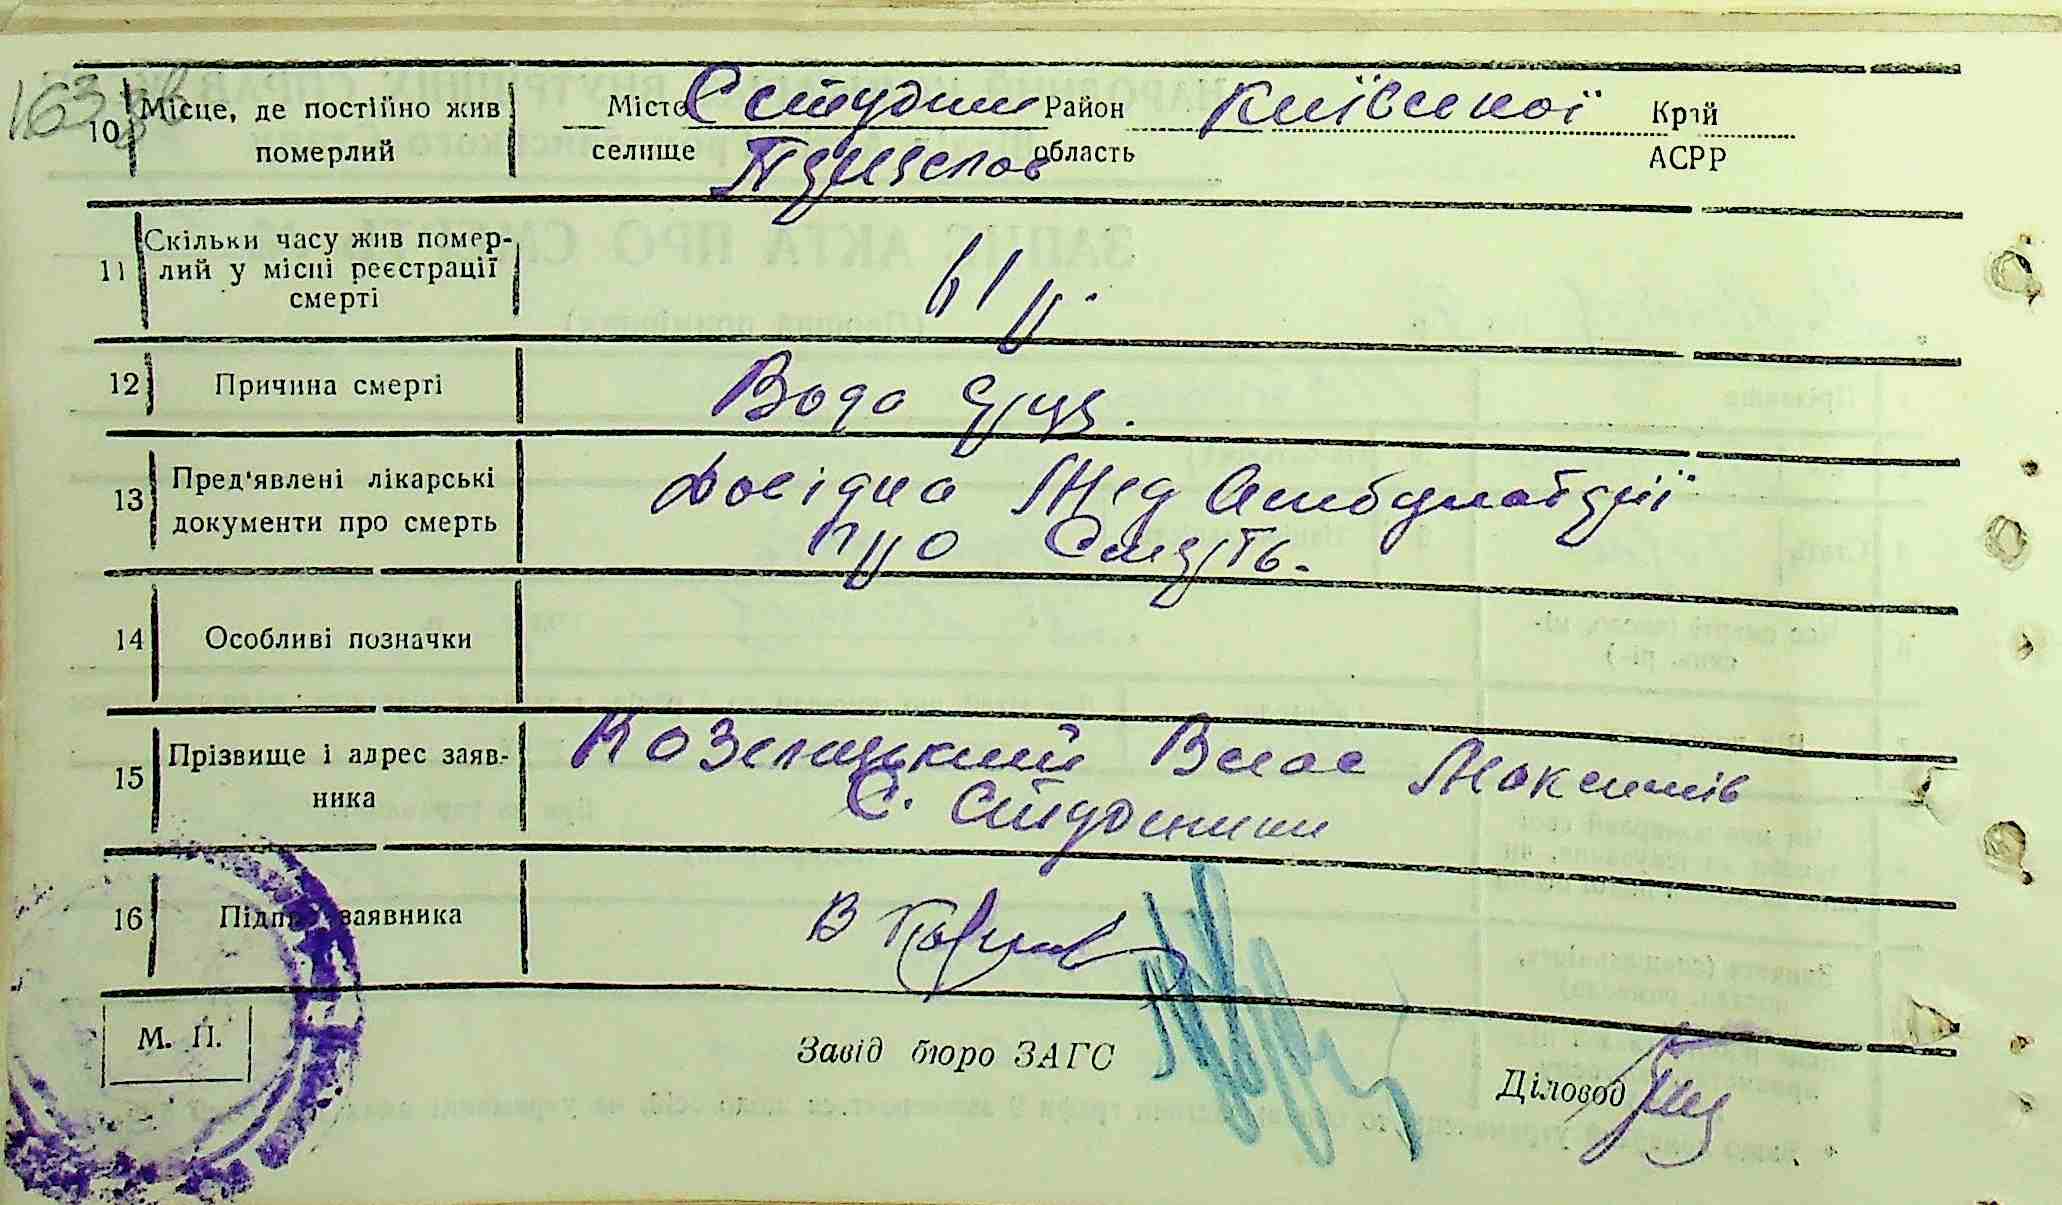 163 зв
10 Місце, де постійно жив померлий
Місто С Студеники Район Київської Край
селище Переяслов область АСРР
11 Скільки часу жив померлий у місці реєстрації смерті
61 р.
12 Причина смерті
Вада серця.
13 Пред'явлені лікарські документи про смерть
Довідка Мед Амбулаторії
про Смерть.
14 Особливі позначки
15 Прізвище і адрес заявника
Козелецький Влас Максимів
С. Студеники
16 Підпис заявника
В
М. П.
Завід бюро ЗАГС
Діловод